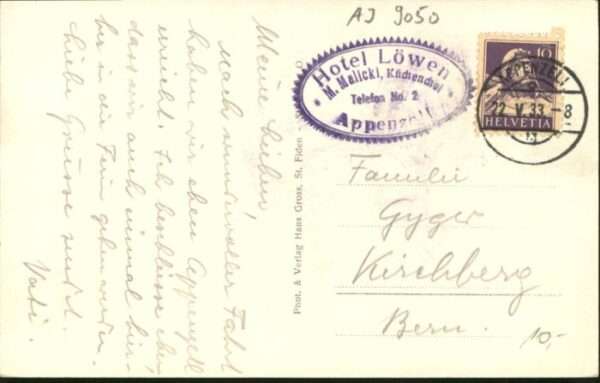 AJ 9050
Hotel Löwen
M. Malicki, Küchenchef
Telefon No. 2
Appenzell
10
HELVETIA
APPENZELL
22. V. 33. - 8
Meine Lieben,
Nach wundervoller Fahrt
haben wir eben Appenzell
erreicht. Ich beschliesse eben
dass wir auch einmal hier-
her in die Ferien gehen werden.
Liebe Grüsse sendet
Vati.
Phot. & Verlag Hans Gross, St. Fiden -
Familie
Gyger
Kirchberg
Bern.
10,-